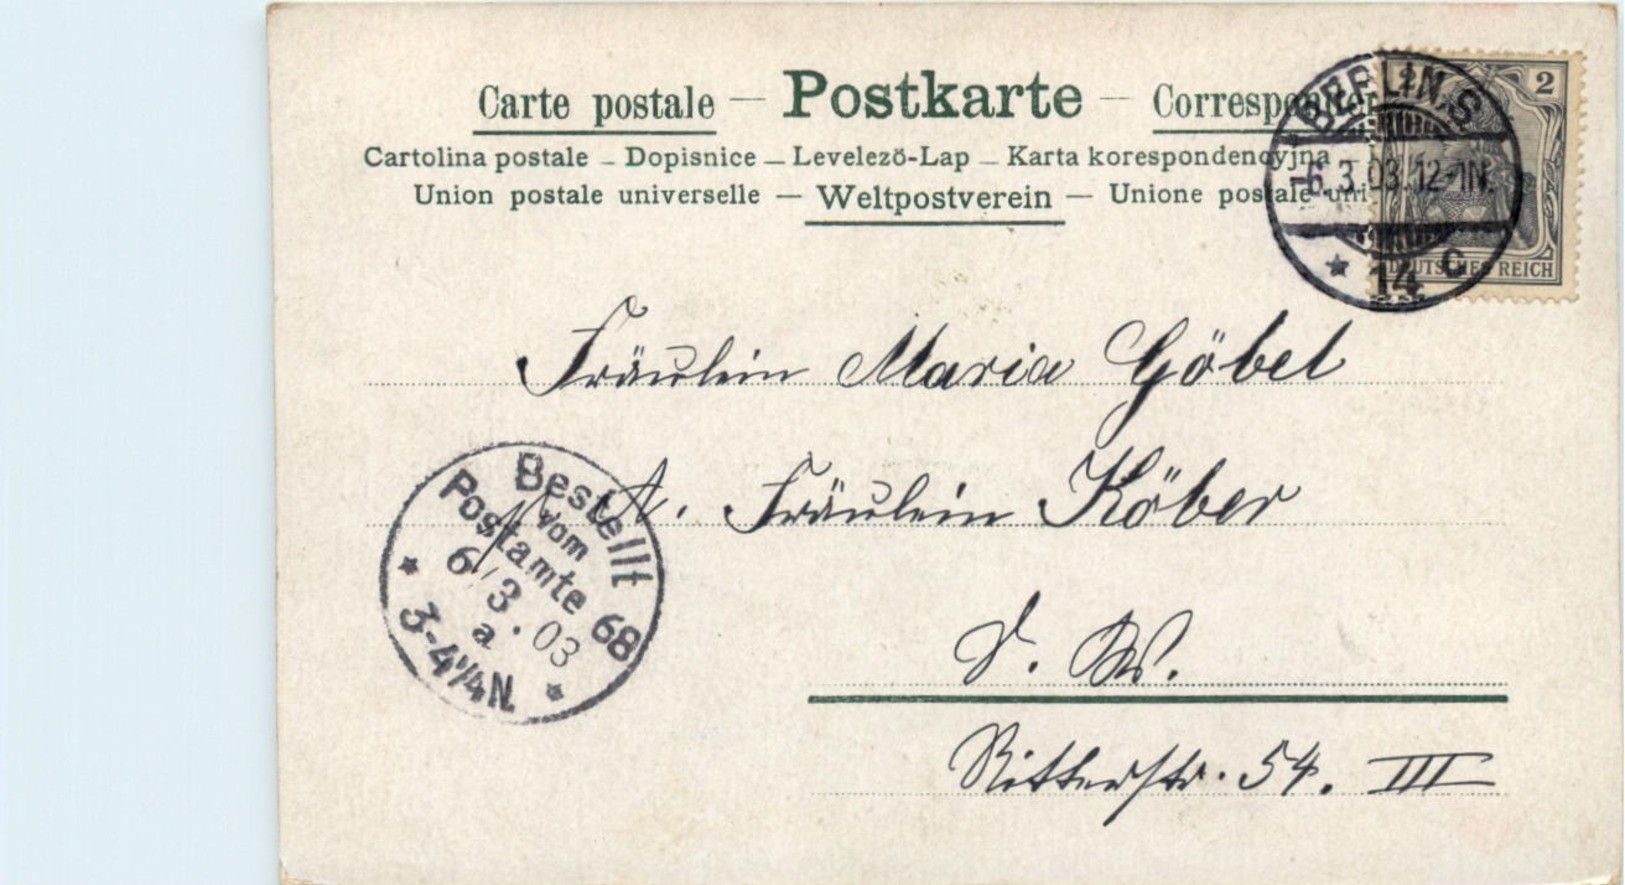 Carte postale — Postkarte — Correspon
Cartolina postale — Dopisnice — Levelező-Lap — Karta korespondencyjna —
Union postale universelle — Weltpostverein — Unione postale uni
BERLIN. S
-6.3.03.12-1N.
* 14 c
2 2
DEUTSCHES REICH
Fräulein Maria Göbel
Bestellt
vom
Postamte 68
6/3.03
a
3-4¼N.
A. Fräulein Köber
S. W.
Ritterstr. 54. III